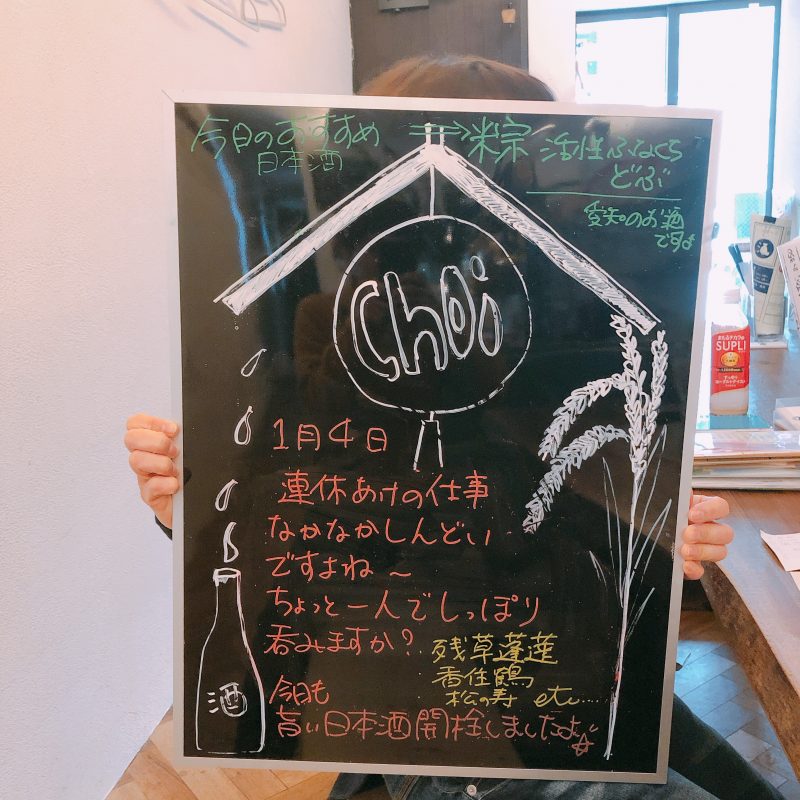 今日のおすすめ
日本酒
⇒粽 活性ふなくち
どぶ
愛知のお酒
です♪
Choi
1月4日
連休あけの仕事
なかなかしんどい
ですよね〜
ちょっと一人でしっぽり
呑みますか?
残草蓬莲
香住鶴
松の寿 etc.....
今日も
旨い日本酒開栓しましたよ☆
酒
SUPLI